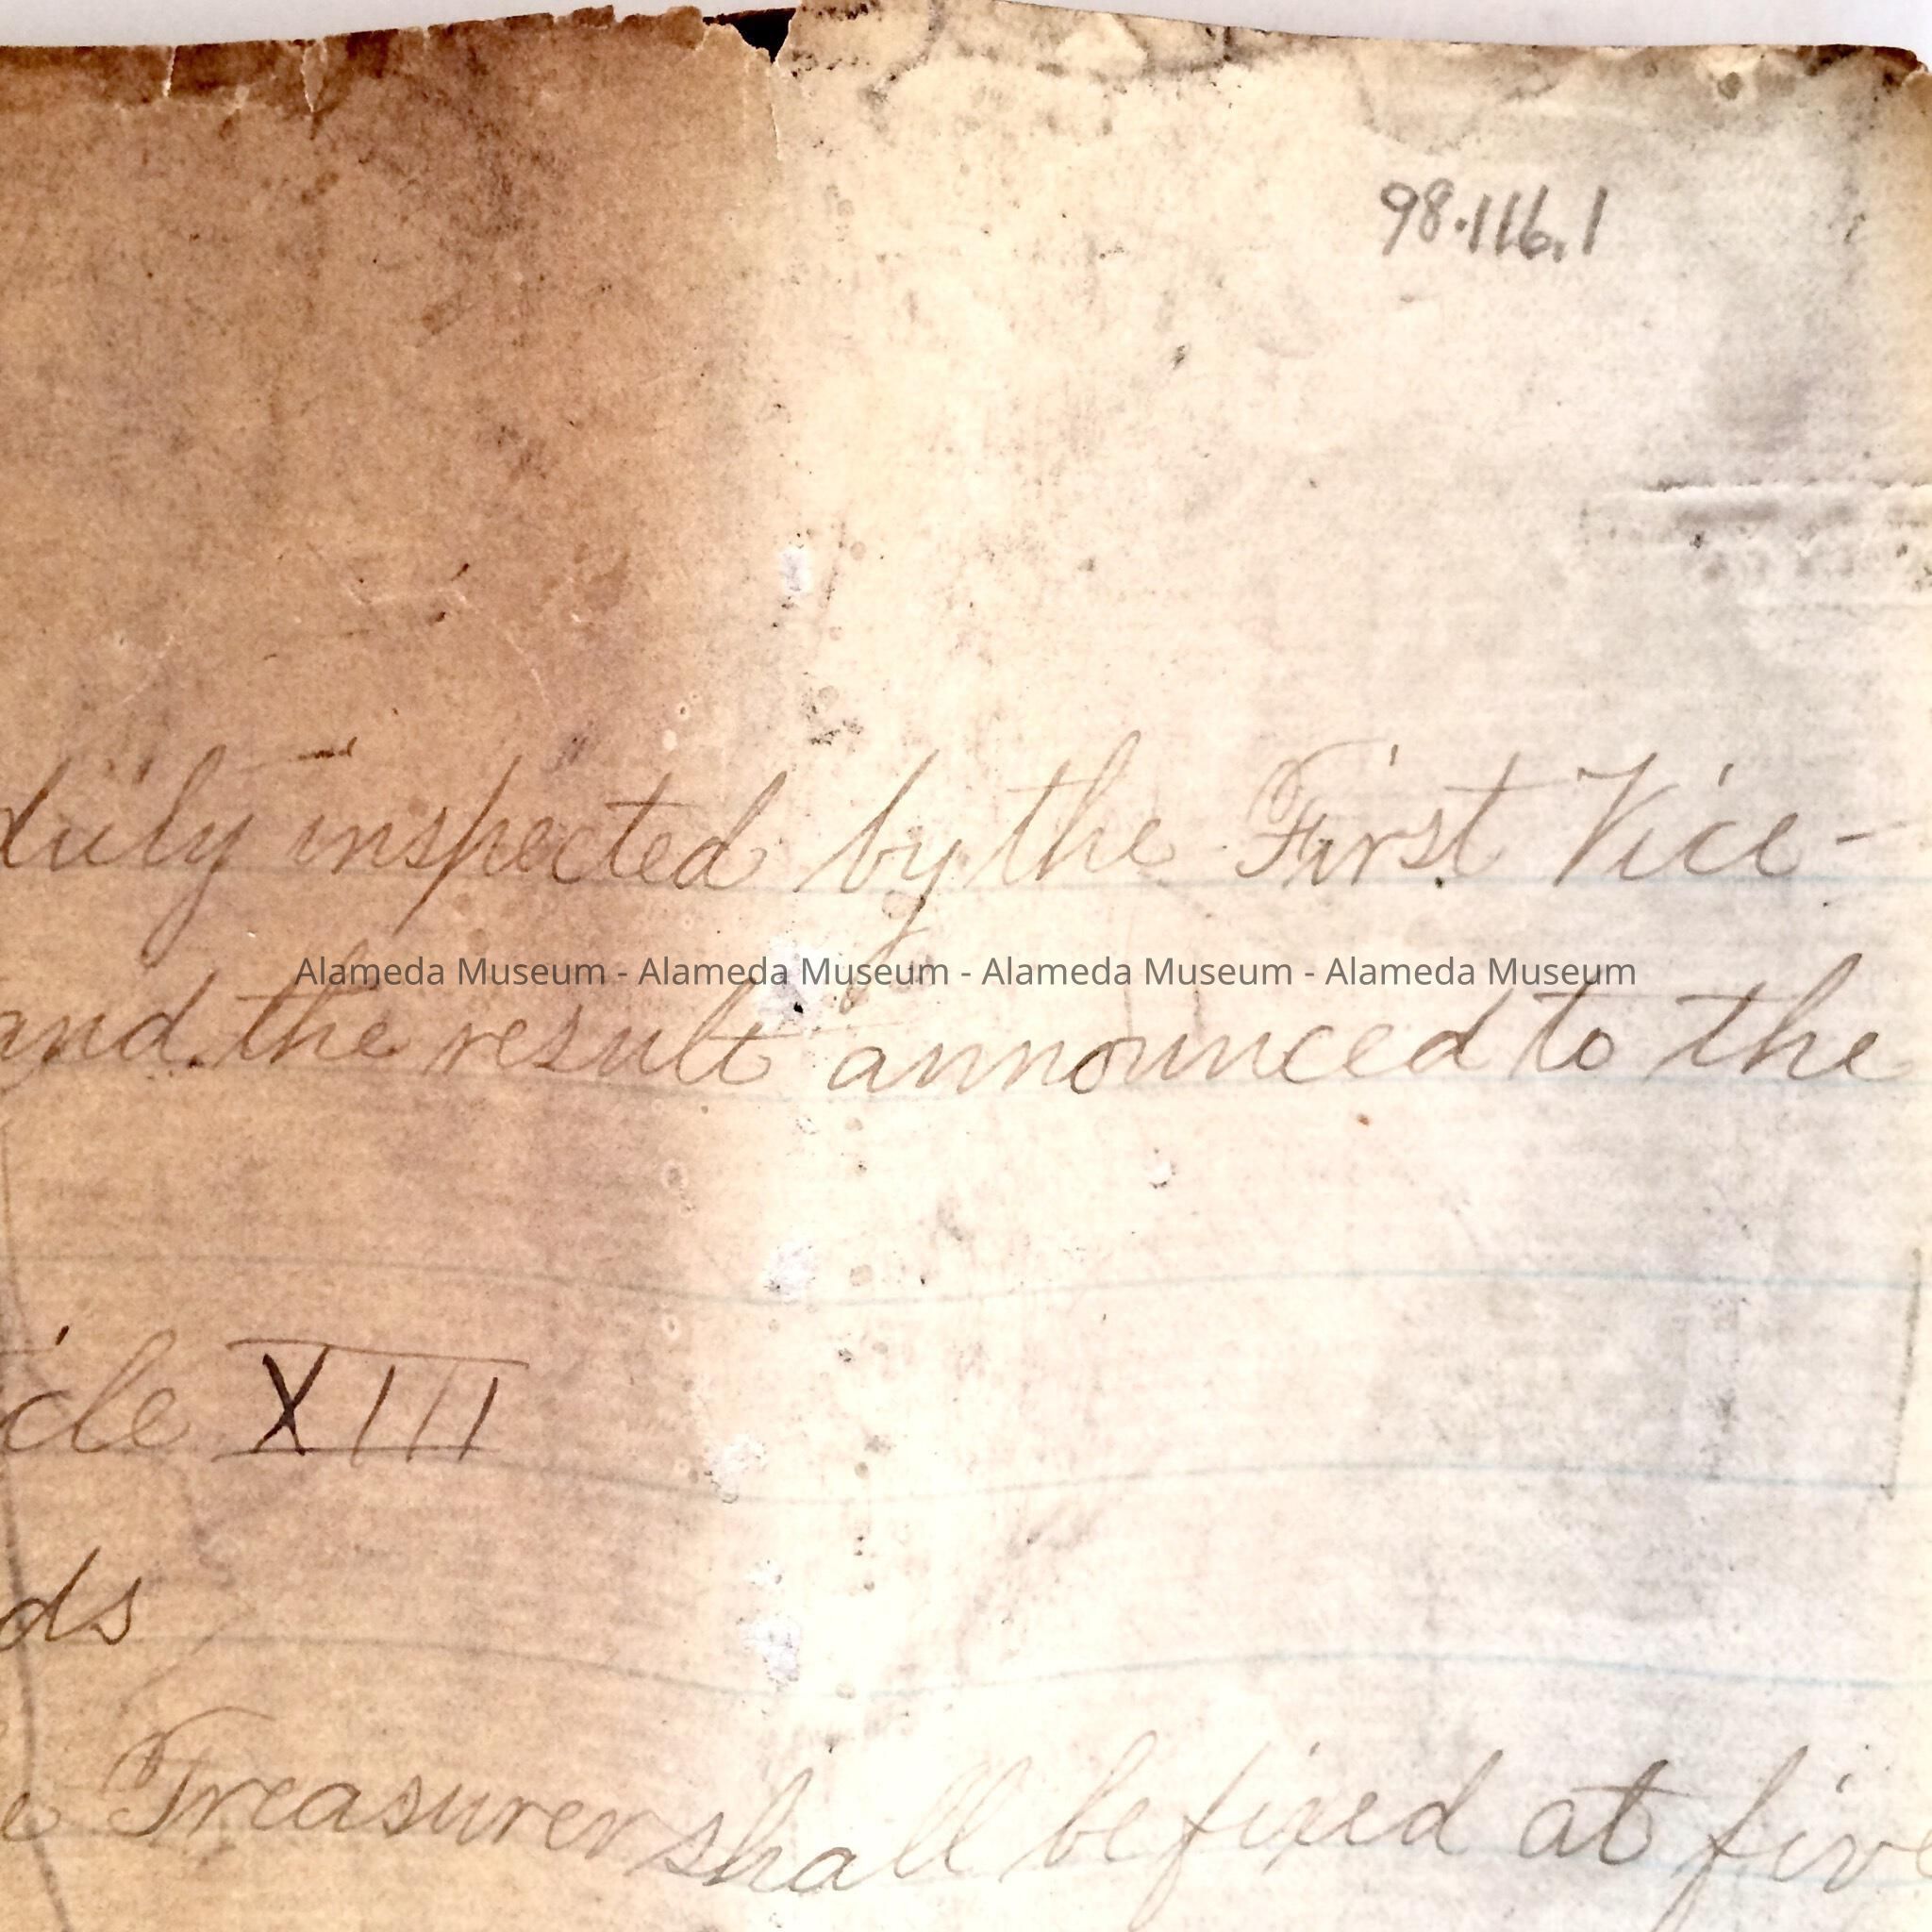 98.116.1
duly inspected by the First Vice-
Alameda Museum - Alameda Museum - Alameda Museum - Alameda Museum
and the result announced to the
cle XIII
ds
e Treasurer shall be fixed at five